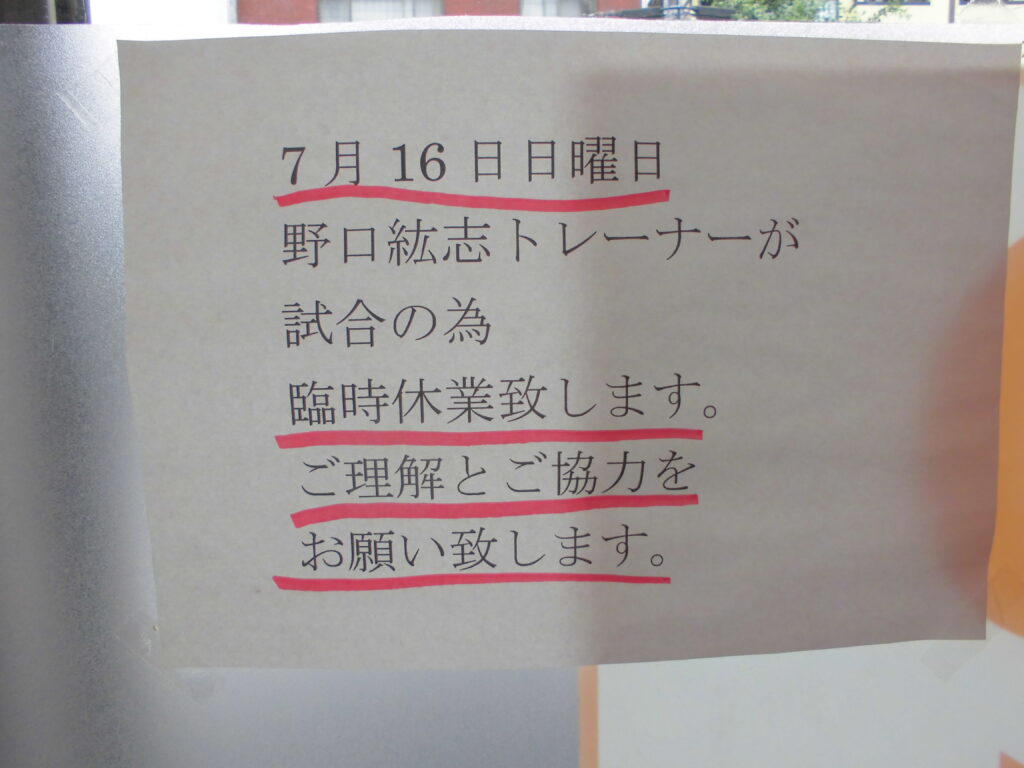 7月16日日曜日
野口紘志トレーナーが
試合の為
臨時休業致します。
ご理解とご協力を
お願い致します。